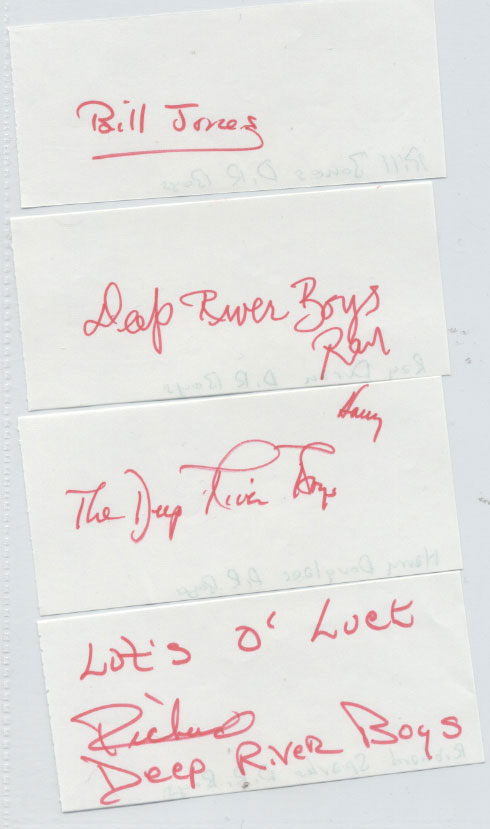 Bill Jones
Bill Jones D.R Boys
Deep River Boys
Ray
Ray D.R Boys
Harry
The Deep River Boys
Harry Douglass D.R Boys
Lot's O' Luck
Richard
Deep River Boys
Richard Sparks D.R. Boys